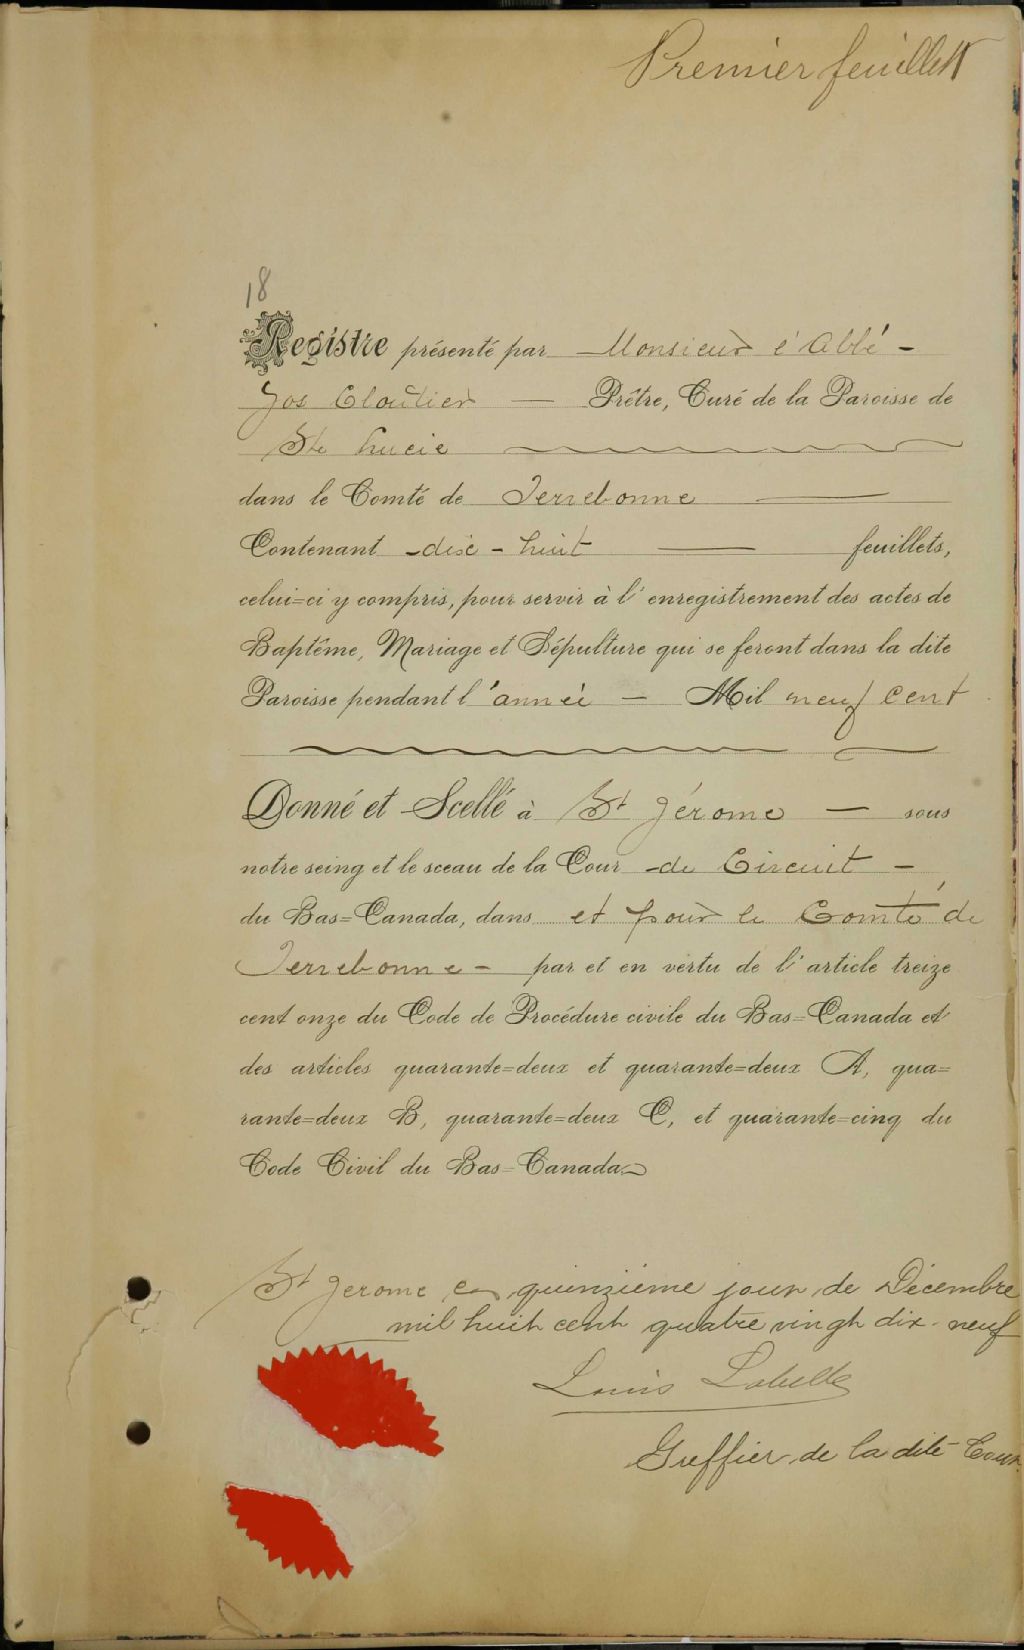 Premier feuillet
18
Registre présenté par Monsieur l'Abbé -
Jos Cloutier — Prêtre, Curé de la Paroisse de
Ste Lucie
dans le Comté de Terrebonne —
Contenant - dix - huit — feuillets,
celui=ci y compris, pour servir à l'enregistrement des actes de
Baptême, Mariage et Sépulture qui se feront dans la dite
Paroisse pendant l'année — Mil neuf cent
Donné et Scellé à St Jérome — sous
notre seing et le sceau de la Cour - de Circuit -
du Bas=Canada, dans et pour le Comté de
Terrebonne - par et en vertu de l'article treize
cent onze du Code de Procédure civile du Bas=Canada et
des articles quarante=deux et quarante=deux A, qua=
rante=deux B, quarante=deux C, et quarante=cinq du
Code Civil du Bas=Canada
St Jerome ce quinzième jour de Décembre
mil huit cent quatre vingt dix-neuf
Louis Labelle
Greffier de la dite Cour.